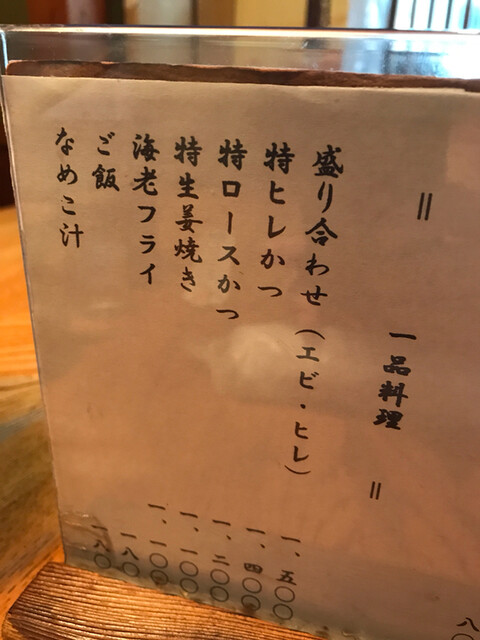 ＝ 一品料理 ＝
盛り合わせ（エビ・ヒレ） 一、五〇〇
特ヒレかつ 一、四〇〇
特ロースかつ 一、二〇〇
特生姜焼き 一、一〇〇
海老フライ 一、一〇〇
ご飯 一八〇
なめこ汁 一八〇